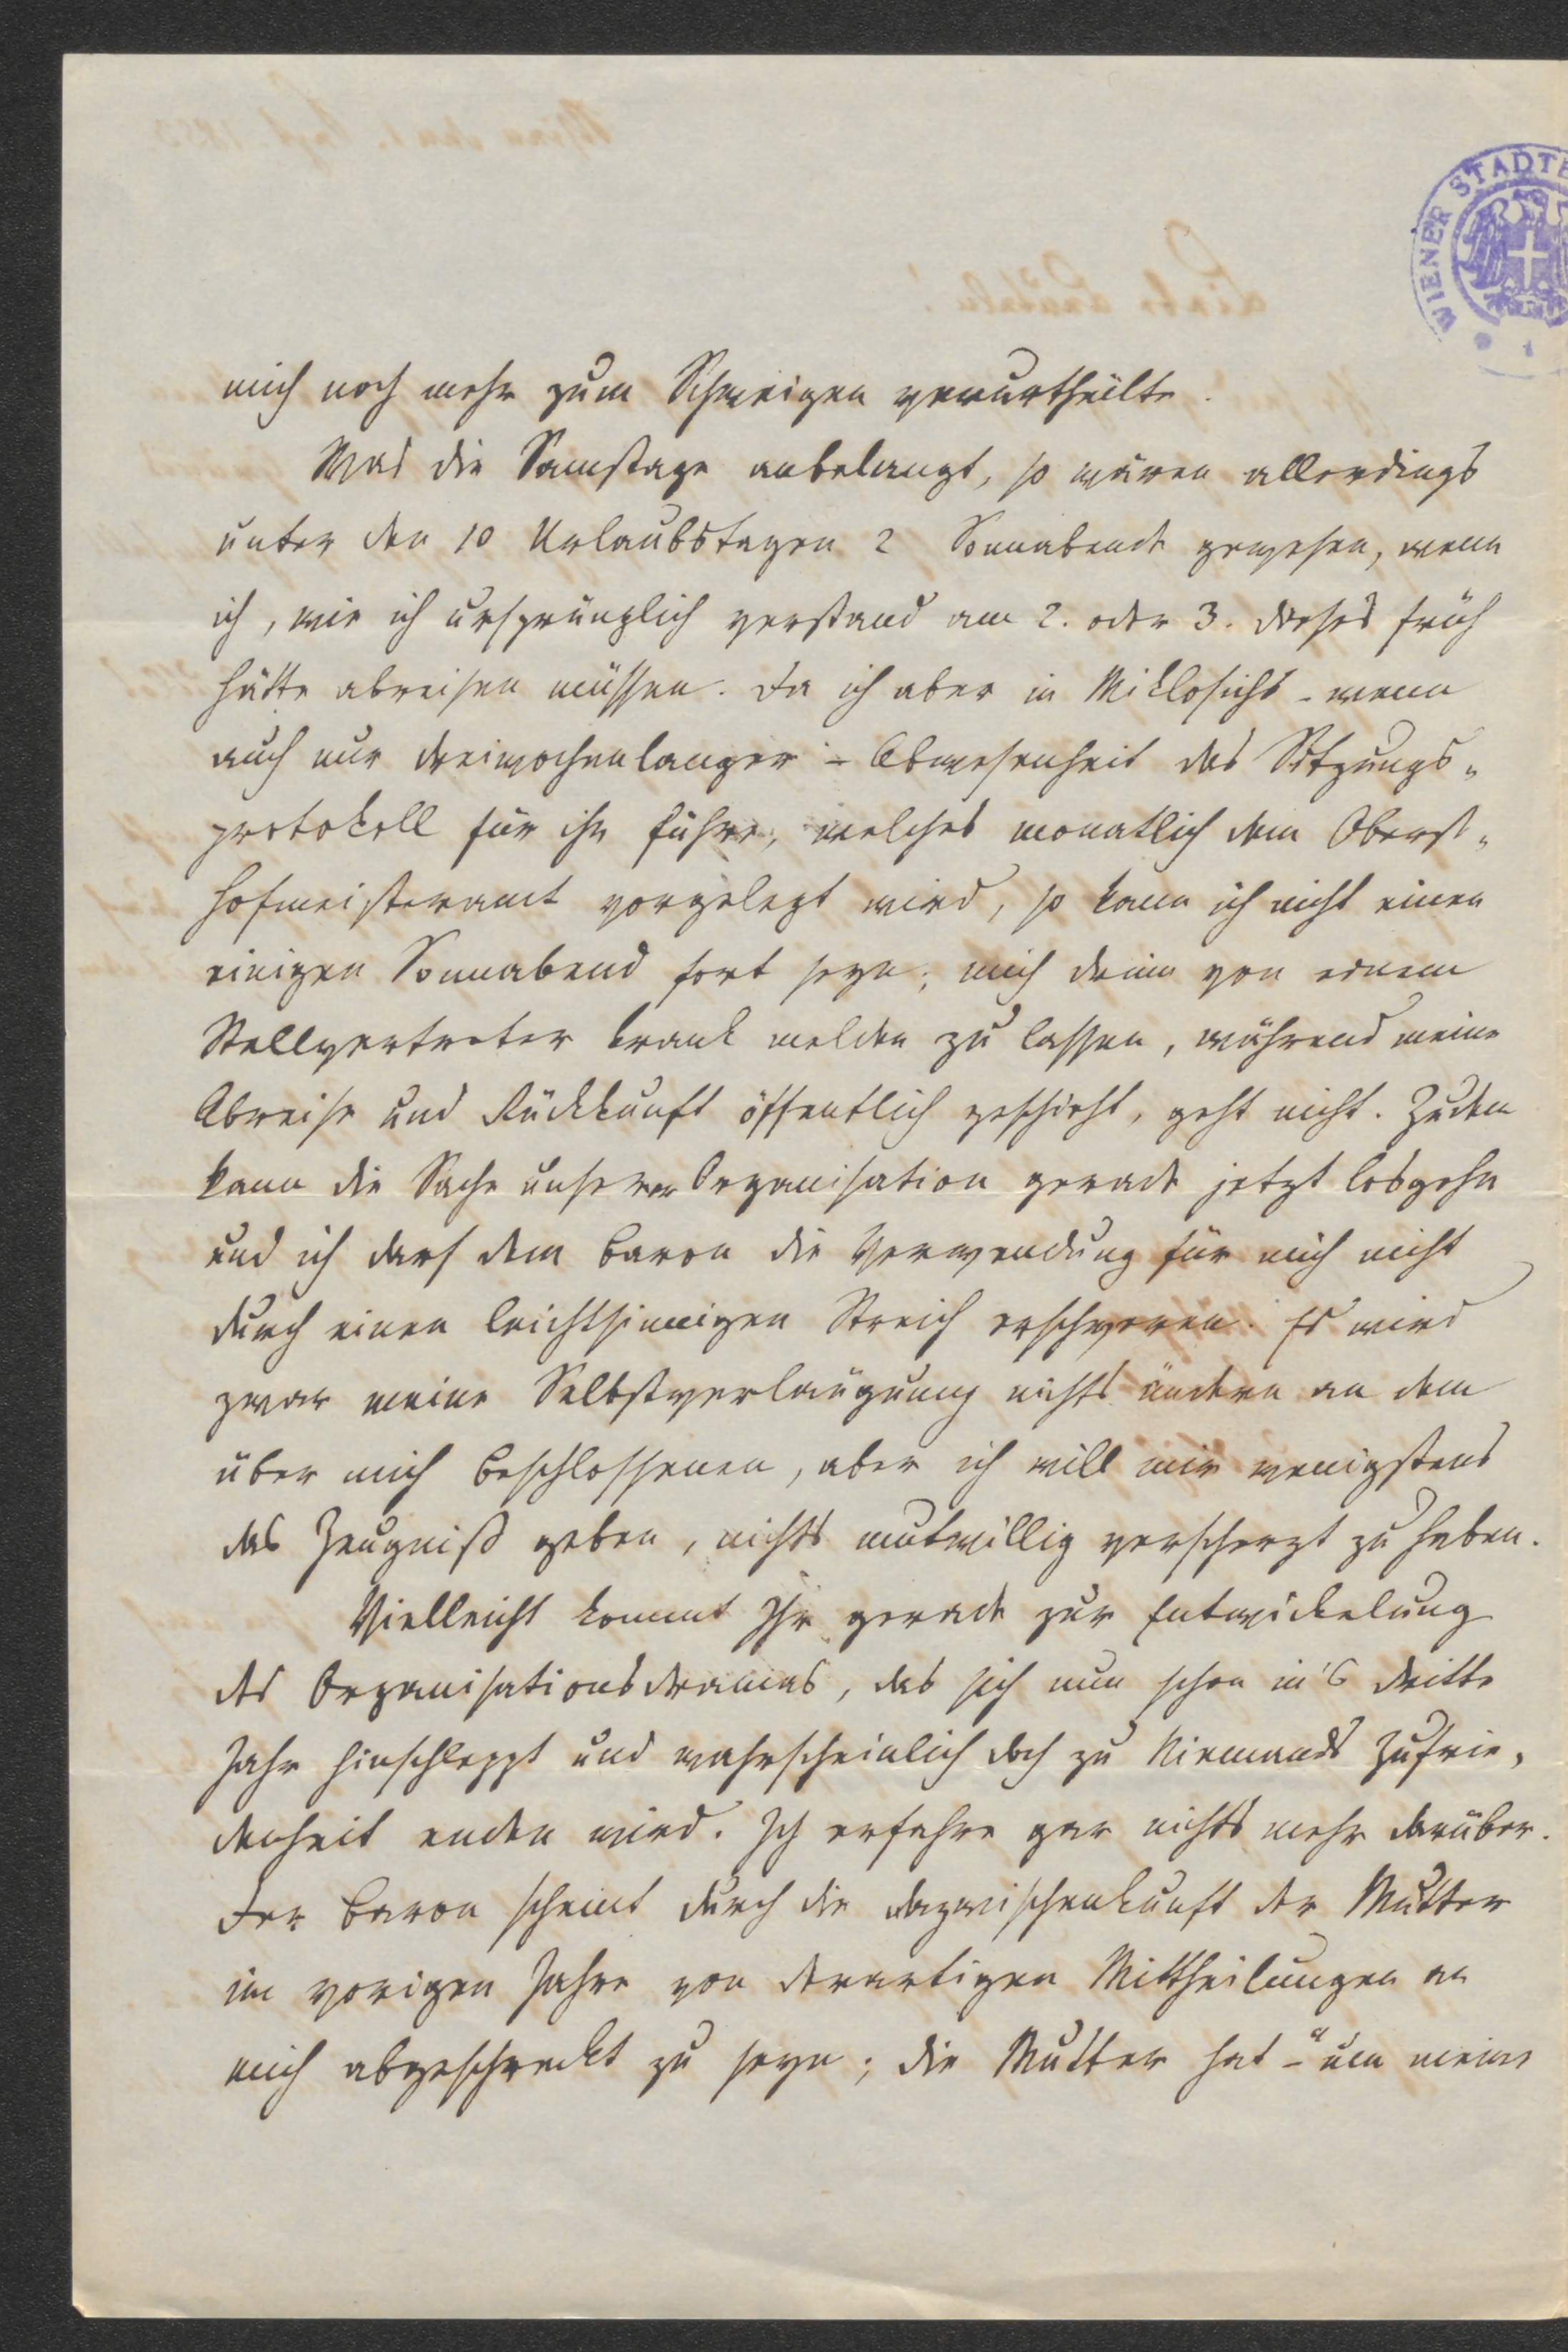 WIENER STADTB
mich noch mehr zum Schweigen verurtheilte.
Was die Samstage anbelangt, so wären allerdings
unter den 10 Urlaubstagen 2 Sonnabende gewesen, wenn
ich, wie ich ursprünglich verstand am 2. oder 3. dieses früh
hätte abreisen müssen. Da ich aber in Miklosichs - wenn
auch nur dreiwochenlanger - Abwesenheit das Sitzungs-
protokoll für ihn führe, welches monatlich dem Oberst-
hofmeisteramt vorgelegt wird, so kann ich nicht einen
einigen Sonnabend fort seyn; mich drinn von einem
Stellvertreter krank melden zu lassen, während meine
Abreise und Rückkunft öffentlich geschieht, geht nicht. Zudem
kann die Sache unserer Organisation gerade jetzt losgehn
und ich darf dem Baron die Verwendung für mich nicht
durch einen leichtsinnigen Streich erschweren. Es wird
zwar meine Selbstverläugnung nichts ändern an dem
über mich Beschlossenen, aber ich will mir wenigstens
das Zeugniß geben, nichts mutwillig verscherzt zu haben.
Vielleicht kommt Ihr gerade zur Entwickelung
des Organisationsdramas, das sich nun schon in's dritte
Jahr hinschleppt und wahrscheinlich doch zu Niemands Zufrie-
denheit enden wird. Ich erfahre gar nichts mehr darüber.
Der Baron scheint durch die Dazwischenkunft der Mutter
im vorigen Jahre von derartigen Mittheilungen an
mich abgeschreckt zu seyn; die Mutter hat - "um meine